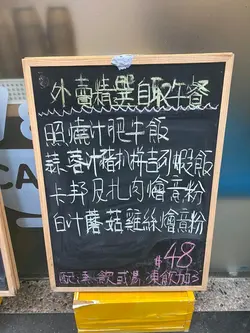 外賣精選自取午餐
照燒汁肥牛飯
蒜蓉汁豬扒拼吉列蝦飯
卡邦尼扎肉燴意粉
白汁蘑菇雞絲燴意粉
$48
配凍飲或熱凍飲加3